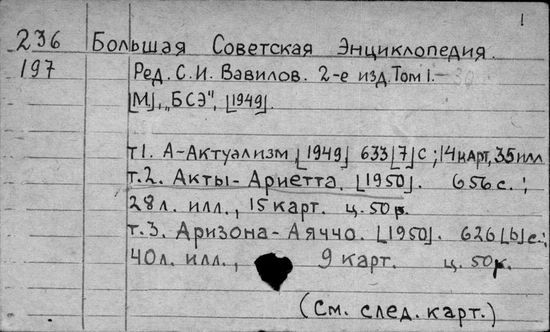 1
236 Большая Советская Энциклопедия.
197 Ред. С.И. Вавилов. 2-е изд. Том 1.-30
[М], „БСЭ", [1949].
т1. А-Актуализм, [1949] 633[7]с; 14 карт, 35 илл
т.2. Акты-Ариетта, [1950]. 656с.;
28л. илл., 15 карт. ц. 50р.
т.3. Аризона-Аяччо. [1950]. 626[6]с.;
40л. илл., 9 карт. ц. 50р.
(См. след. карт.)